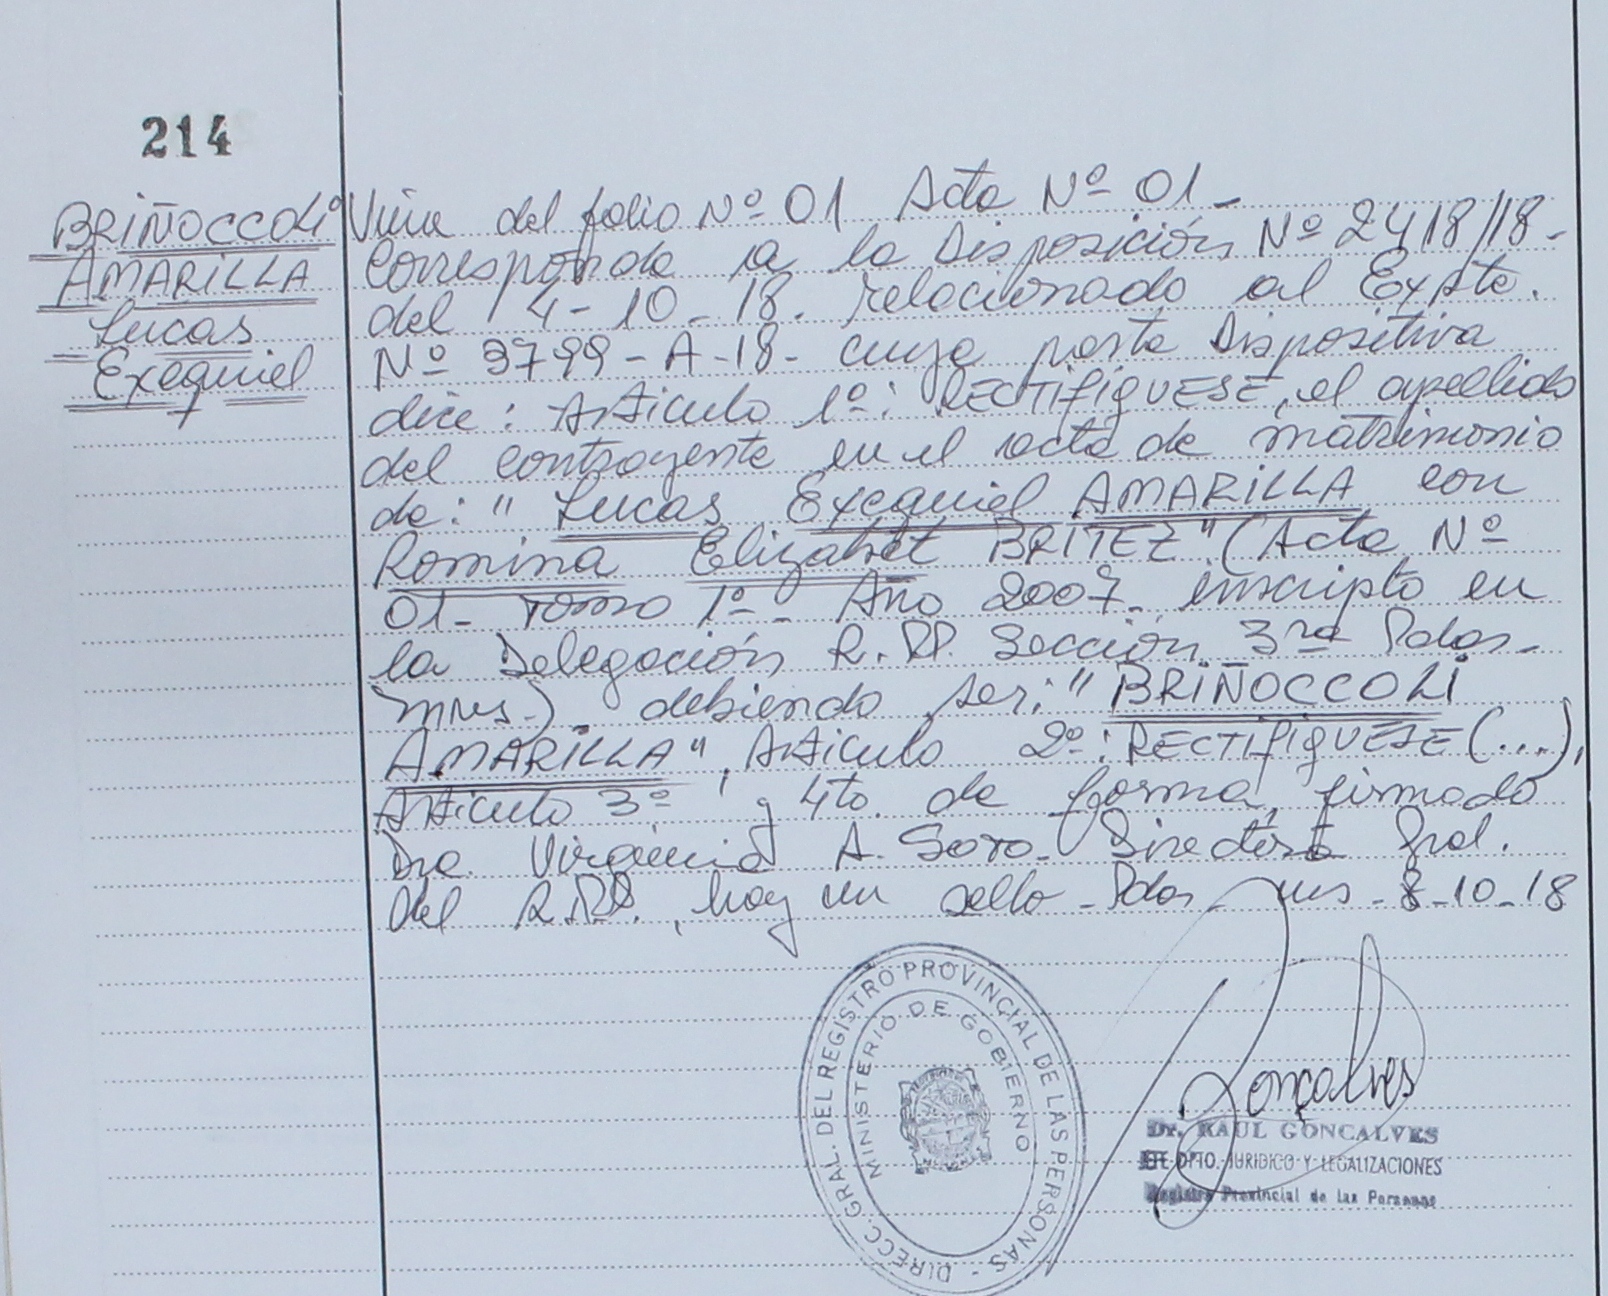 214
BRIÑOCCOLI
AMARILLA
Lucas
Exequiel
Viene del folio Nº 01 Acta Nº 01-
Corresponde a la Disposición Nº 2418/18-
del 4-10-18. relacionado al Expte.
Nº 3799-A-18- cuya parte Dispositiva
dice: Artículo 1º: RECTIFIQUESE, el apellido
del contrayente en el acta de matrimonio
de: "Lucas Exequiel AMARILLA con
Romina Elizabet BRITEZ" (Acta Nº
01- Tomo 1º- Año 2007- inscripto en
la Delegación R.PP. Sección 3ra Pdas-
mnes-)- debiendo ser: "BRIÑOCCOLI
AMARILLA", Artículo 2º: RECTIFIQUESE (...),
Artículo 3º y 4to de forma, firmado
Dra. Virginia A. Soto- Directora Gral.
del R.PP., hay un sello- Pdas- mns- 8-10-18
DIRECC. GRAL. DEL REGISTRO PROVINCIAL DE LAS PERSONAS -
MINISTERIO DE GOBIERNO
Gonçalves
Dr. RAUL GONCALVES
JEFE DPTO. JURIDICO Y LEGALIZACIONES
Registro Provincial de las Personas